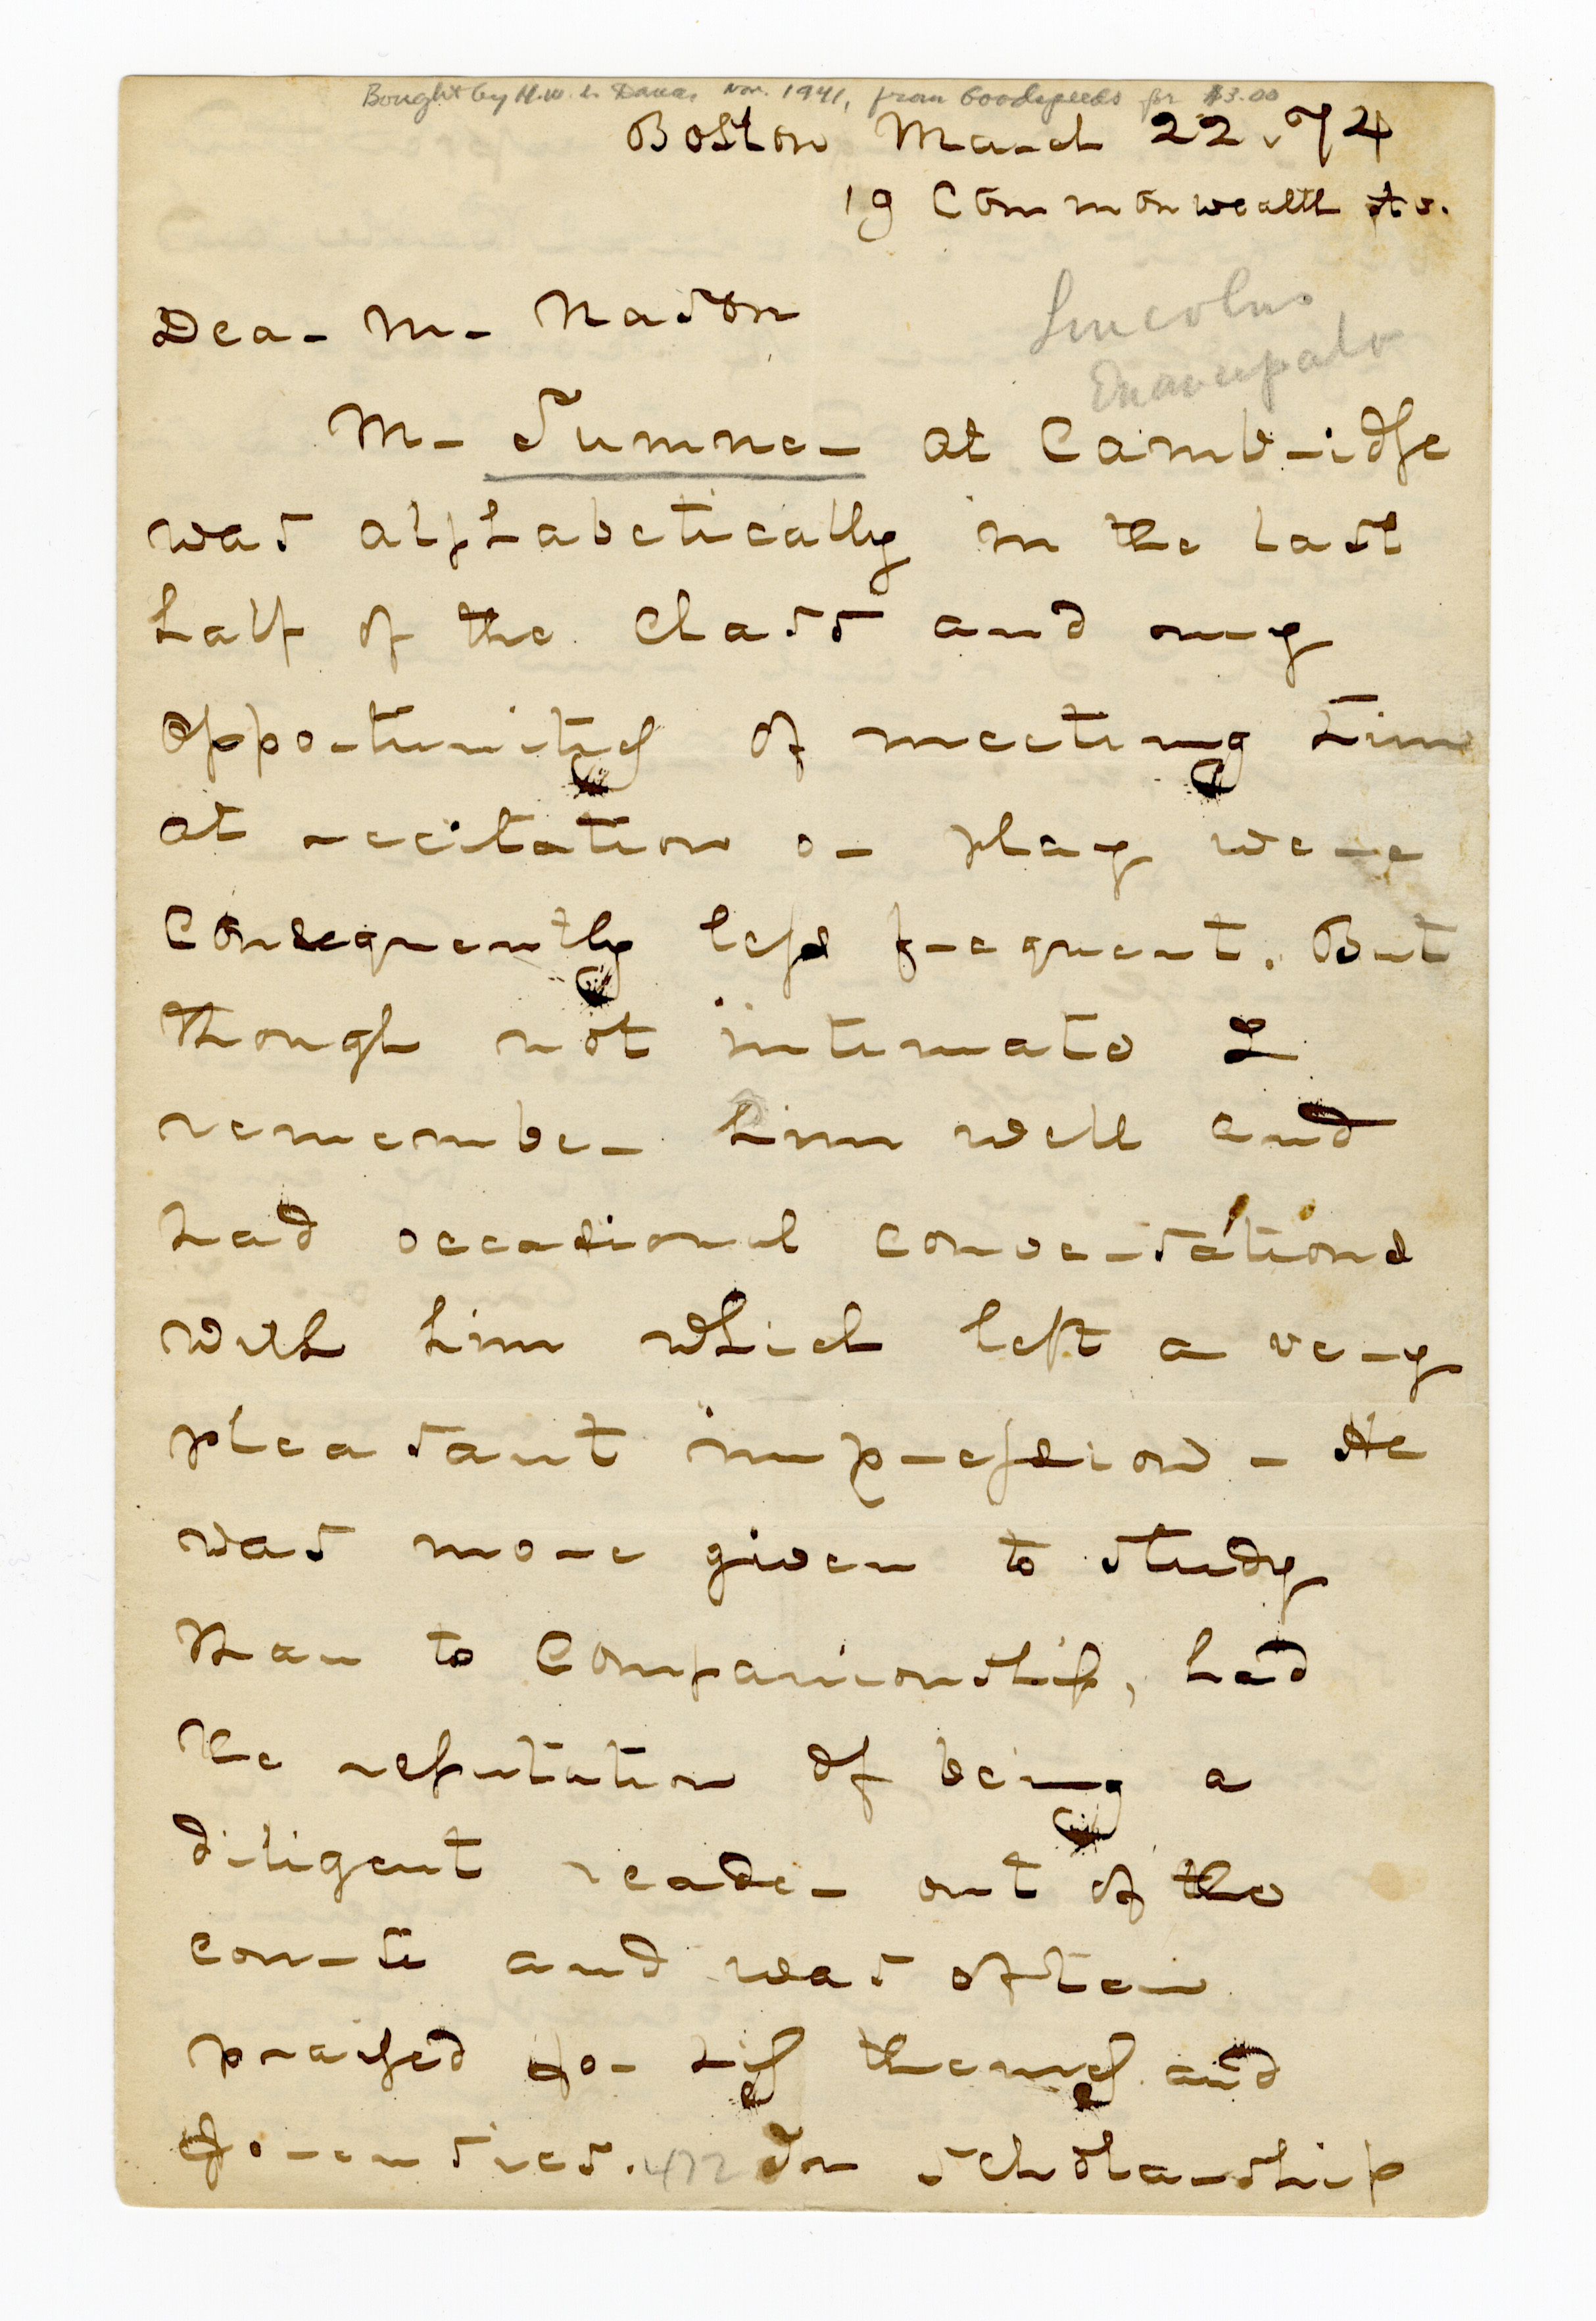 Bought by H.W.L. Dana, Nov. 1941, from Goodspeeds for $3.00
Boston March 22, 74
19 Commonwealth Av.
Dear Mr Nason
Lincolns
Emancipato
Mr Sumner at Cambridge
was alphabetically in the last
half of the class and my
opportunities of meeting him
at recitation or play were
consequently less frequent. But
though not intimate I
remember him well and
had occasional conversations
with him which left a very
pleasant impression - He
was more given to study
than to companionship, had
the reputation of being a
diligent reader out of the
course and was often
praised for his themes and
forensics. 472 In scholarship